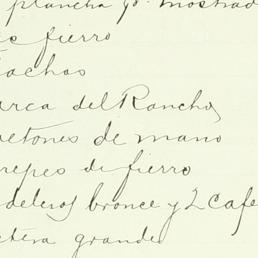 plancha pa. mostrad
fierro
tachos
arca del Rancho
etones de mano
repes de fierro
deleros bronce y 2 cafe
tera grande